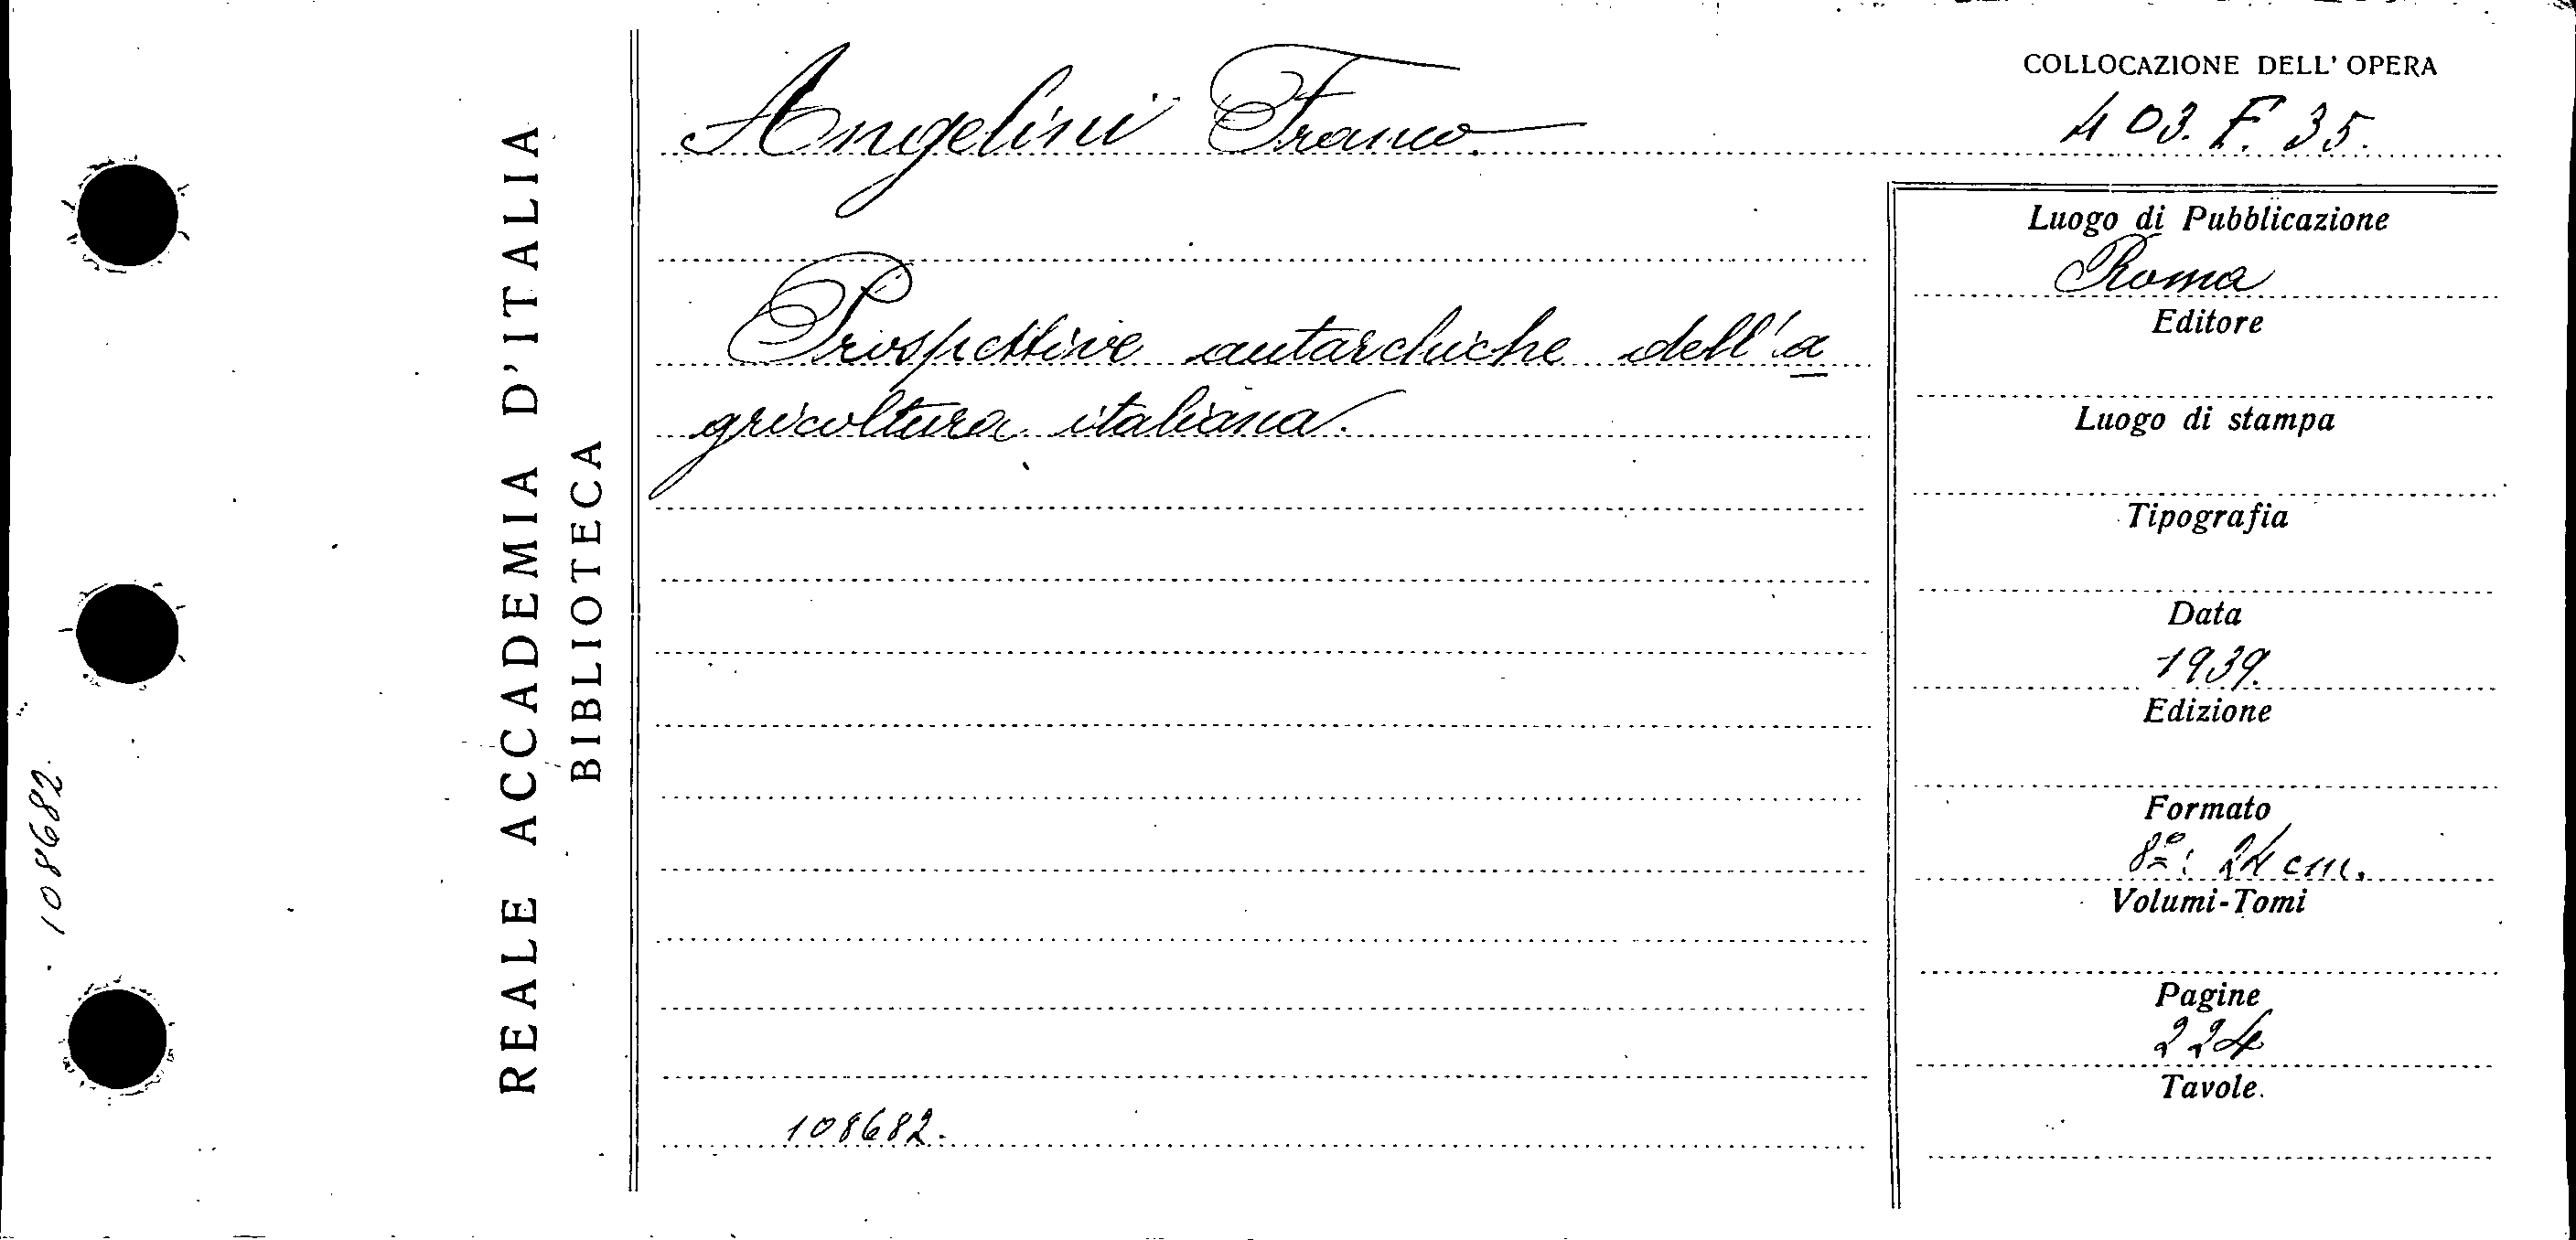 108682.
REALE ACCADEMIA D'ITALIA
BIBLIOTECA
Angelini Franco.
Prospettive autarchiche dell'a
gricoltura italiana.
108682.
COLLOCAZIONE DELL' OPERA
403. F. 35.
Luogo di Pubblicazione
Roma
Editore
Luogo di stampa
Tipografia
Data
1939.
Edizione
Formato
8º: 24 cm.
Volumi-Tomi
Pagine
224
Tavole.